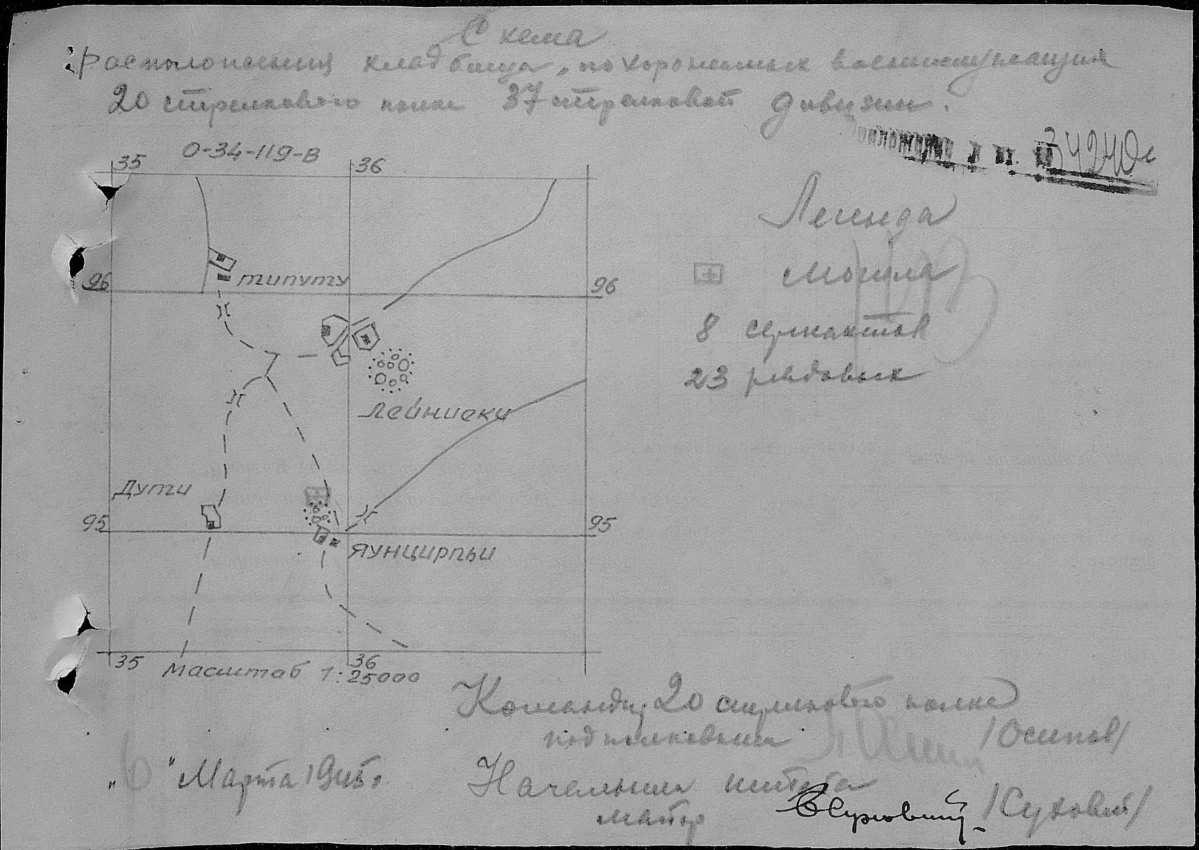 Схема
расположения кладбища, похороненных военнослужащих
20 стрелкового полка 37 стрелковой дивизии.
34240с
О-34-119-В
35 36
Легенда
Типуту
Могила
96 96
8 сержантов
23 рядовых
Лейниеки
Дути
95 95
Яунцирпьи
35 36
Масштаб 1:25000
Командир 20 стрелкового полка
подполковник /Осипов/
"6" Марта 1945г. Начальник штаба
майор /Суховий/